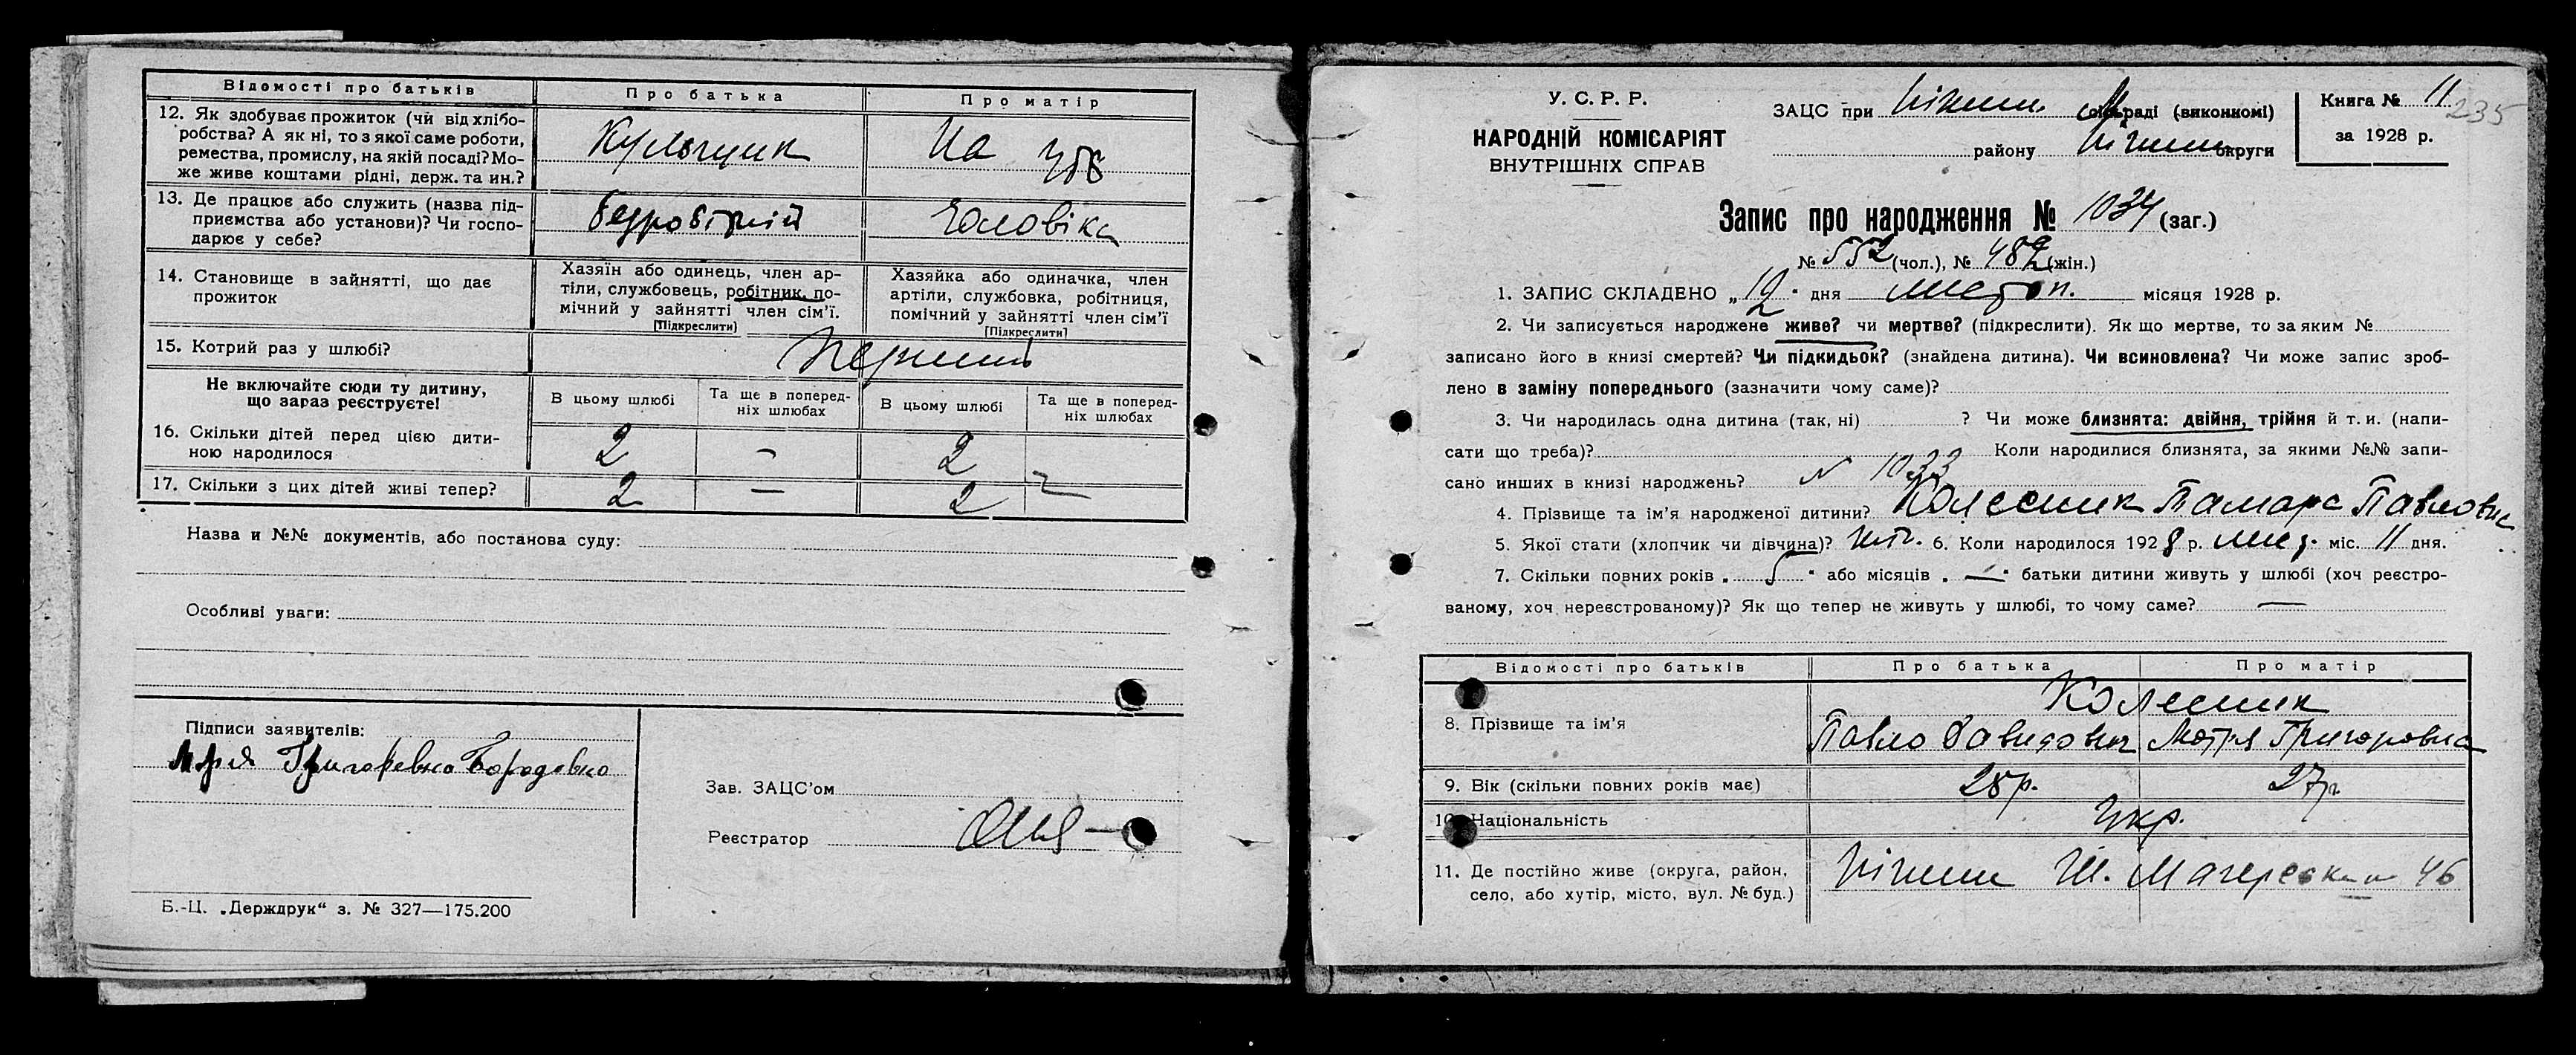 Відомості про батьків Про батька Про матір
12. Як здобуває прожиток (чи від хлібо-
робства? А як ні, то з якої саме роботи,
ремества, промислу, на якій посаді? Мо-
же живе коштами рідні, держ. та ин.?
На
13. Де працює або служить (назва під-
приємства або установи)? Чи госпо-
дарює у себе?
безробітній Чоловіка
14. Становище в зайнятті, що дає
прожиток
Хазяїн або одинець, член ар-
тіли, службовець, робітник, по-
мічний у зайнятті член сім'ї.
(Підкреслити)
Хазяйка або одиначка, член
артіли, службовка, робітниця,
помічний у зайнятті член сім'ї
(Підкреслити)
15. Котрий раз у шлюбі? Перший
Не включайте сюди ту дитину,
що зараз реєструєте!
В цьому шлюбі
Та ще в поперед-
ніх шлюбах
В цьому шлюбі
Та ще в поперед-
ніх шлюбах
16. Скільки дітей перед цією дити-
ною народилося
2 — 2
17. Скільки з цих дітей живі тепер? 2 — 2 —
Назва и №№ документів, або постанова суду:
Особливі уваги:
Підписи заявителів:
Григоревна
Зав. ЗАЦС'ом
Реєстратор
Б.-Ц. „Держдрук“ з. № 327—175.200
У. С. Р. Р.
НАРОДНІЙ КОМІСАРІЯТ
ВНУТРІШНІХ СПРАВ
ЗАЦС при Ніжин. М. сільраді (виконкомі)
району Ніжин округи
Книга № 11
235
за 1928 р.
Запис про народження № 1034 (заг.)
№ 552 (чол.), № 482 (жін.)
1. ЗАПИС СКЛАДЕНО „12“ дня листоп. місяця 1928 р.
2. Чи записується народжене живе? чи мертве? (підкреслити). Як що мертве, то за яким №
записано його в книзі смертей? Чи підкидьок? (знайдена дитина). Чи всиновлена? Чи може запис зроб-
лено в заміну попереднього (зазначити чому саме)?
3. Чи народилась одна дитина (так, ні) ? Чи може близнята: двійня, трійня й т. и. (напи-
сати що треба)? Коли народилися близнята, за якими №№ запи-
сано инших в книзі народжень? № 1033
4. Прізвище та ім'я народженої дитини? Колесник Тамара Павловна
5. Якої стати (хлопчик чи дівчина)? жін. 6. Коли народилося 1928 р. лист. міс. 11 дня.
7. Скільки повних років „5“ або місяців „—“ батьки дитини живуть у шлюбі (хоч реєстро-
ваному, хоч нереєстрованому)? Як що тепер не живуть у шлюбі, то чому саме? —
Відомості про батьків Про батька Про матір
Колесник
8. Прізвище та ім'я Павло Давидович Мотря Григоровна
9. Вік (скільки повних років має) 28р. 27р
10. Національність Укр.
11. Де постійно живе (округа, район,
село, або хутір, місто, вул. № буд.)
Ніжин Ш. 46